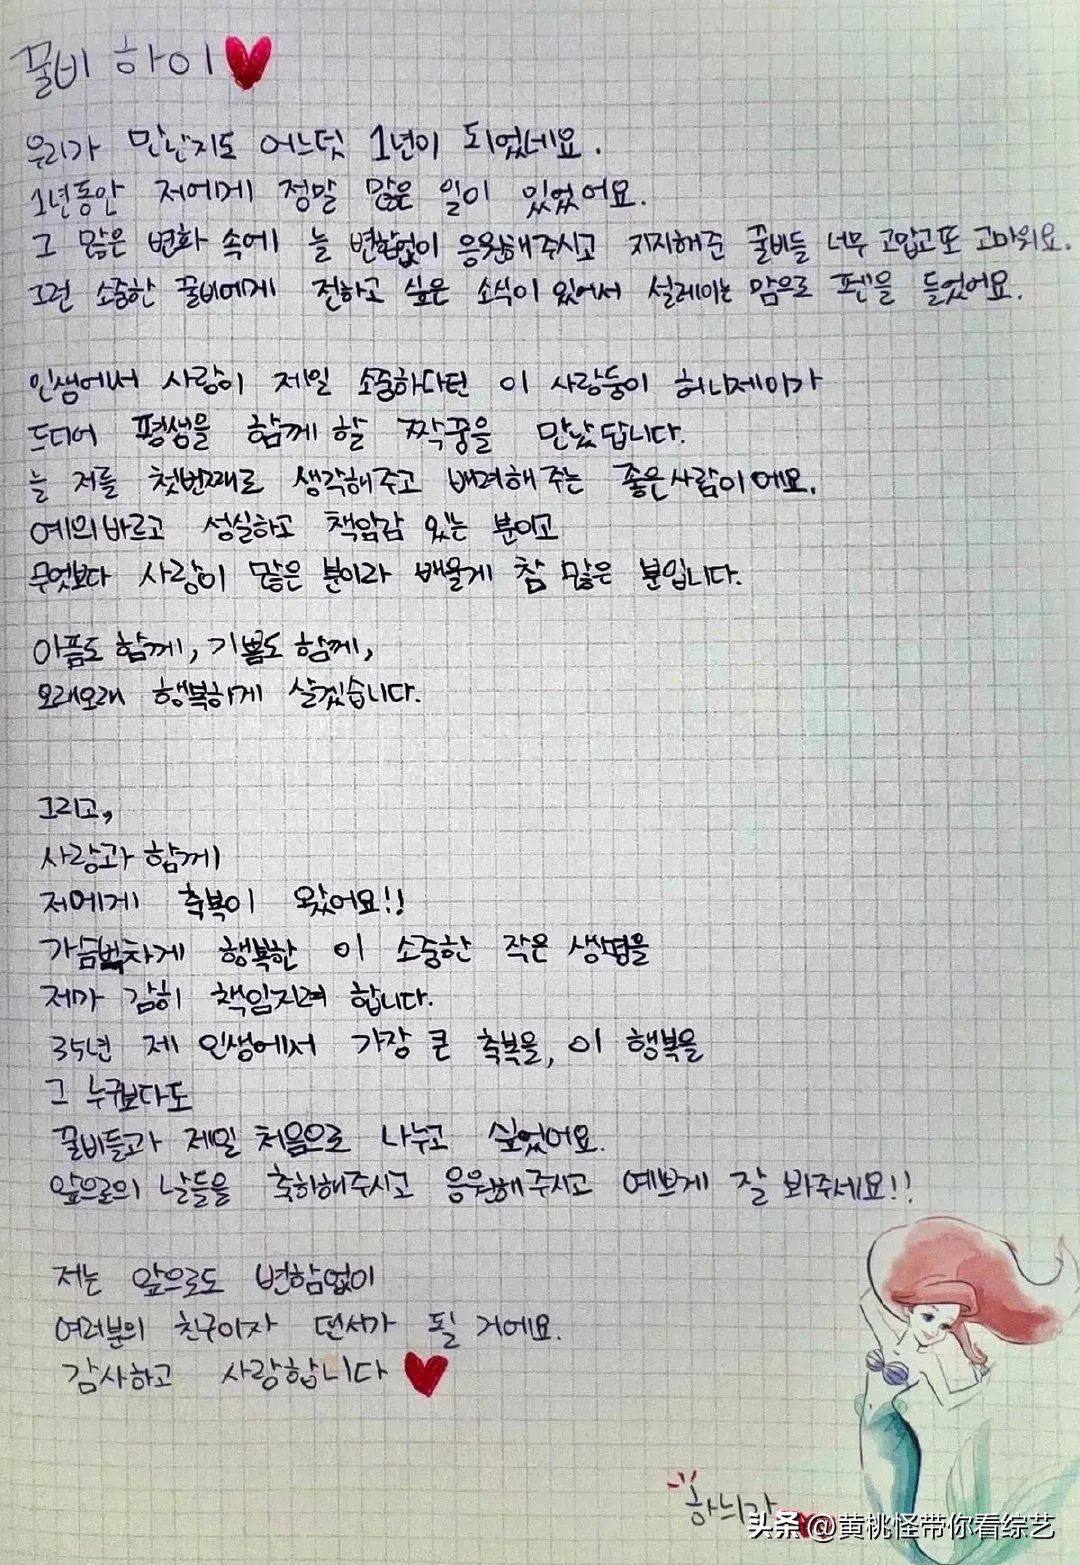 꿀비 하이♥
우리가 만난지도 어느덧 1년이 되었네요.
1년동안 저에게 정말 많은 일이 있었어요.
그 많은 변화 속에 늘 변함없이 응원해주시고 지지해준 꿀비들 너무 고맙고또 고마워요.
그런 소중한 꿀비에게 전하고 싶은 소식이 있어서 설레이는 맘으로 펜을 들었어요.
인생에서 사랑이 제일 소중하다던 이 사랑둥이 허니제이가
드디어 평생을 함께 할 짝꿍을 만났답니다.
늘 저를 첫번째로 생각해주고 배려해 주는 좋은사람이에요.
예의바르고 성실하고 책임감 있는 분이고
무엇보다 사랑이 많은 분이라 배울게 참 많은 분입니다.
아픔도 함께, 기쁨도 함께,
오래오래 행복하게 살겠습니다.
그리고,
사랑과 함께
저에게 축복이 왔어요!!
가슴벅차게 행복한 이 소중한 작은 생명을
제가 감히 책임지려 합니다.
35년 제 인생에서 가장 큰 축복을, 이 행복을
그 누구보다도
꿀비들과 제일 처음으로 나누고 싶었어요.
앞으로의 날들을 축하해주시고 응원해주시고 예쁘게 잘 봐주세요!!
저는 앞으로도 변함없이
여러분의 친구이자 댄서가 될 거에요.
감사하고 사랑합니다♥
하늬가
头条 @黄桃怪带你看综艺